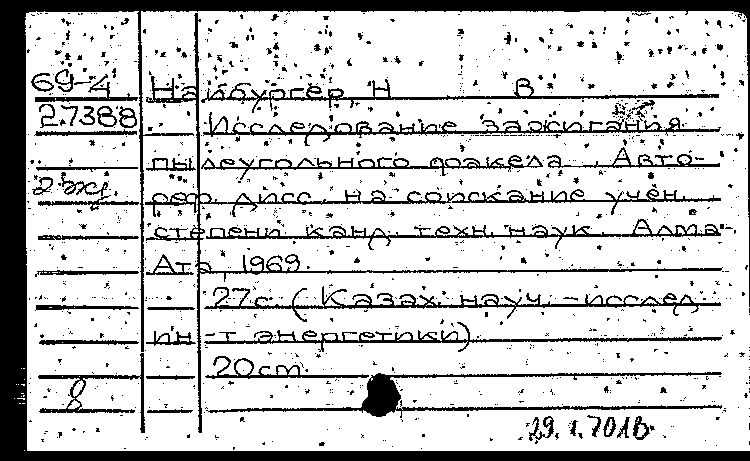 69-4 Найбургер, Н В
27388 Исследование зажигания
пылеугольного факела. Авто-
2 экз. реф. дисс. на соискание учен.
степени канд. техн. наук. Алма-
Ата, 1969.
27с. (Казах. науч.-исслед.
ин-т энергетики)
20cm.
8
29.1.70